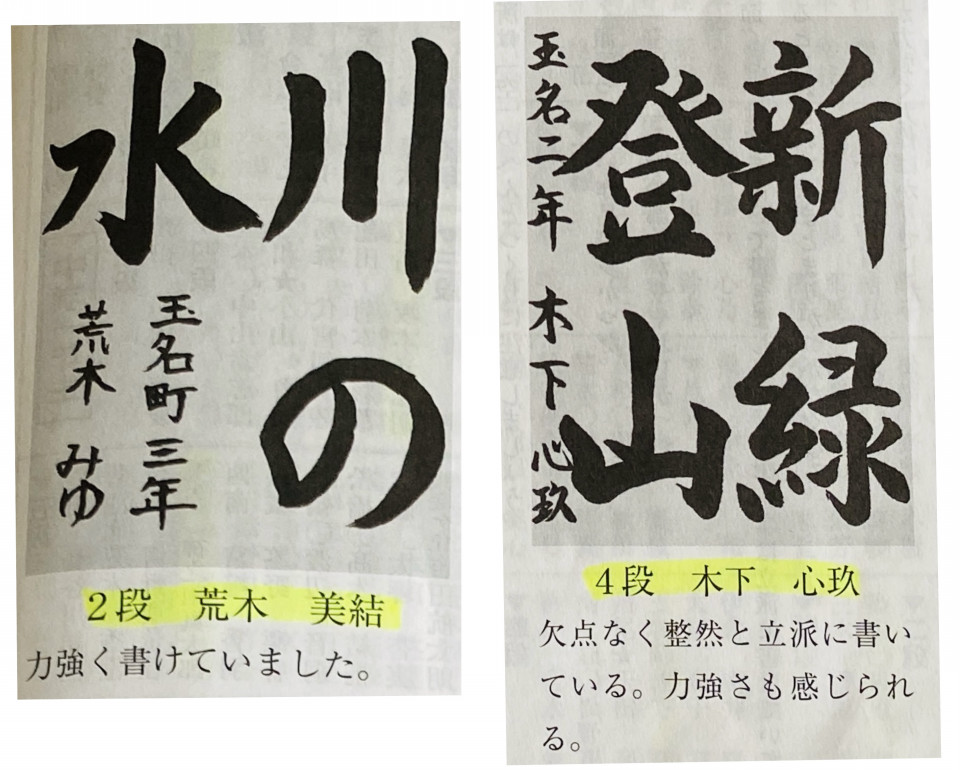 川の
水
玉名町 三年
荒木 みゆ
2段 荒木 美結
力強く書けていました。
新緑
登山
玉名二年 木下 心玖
4段 木下 心玖
欠点なく整然と立派に書い
ている。力強さも感じられ
る。